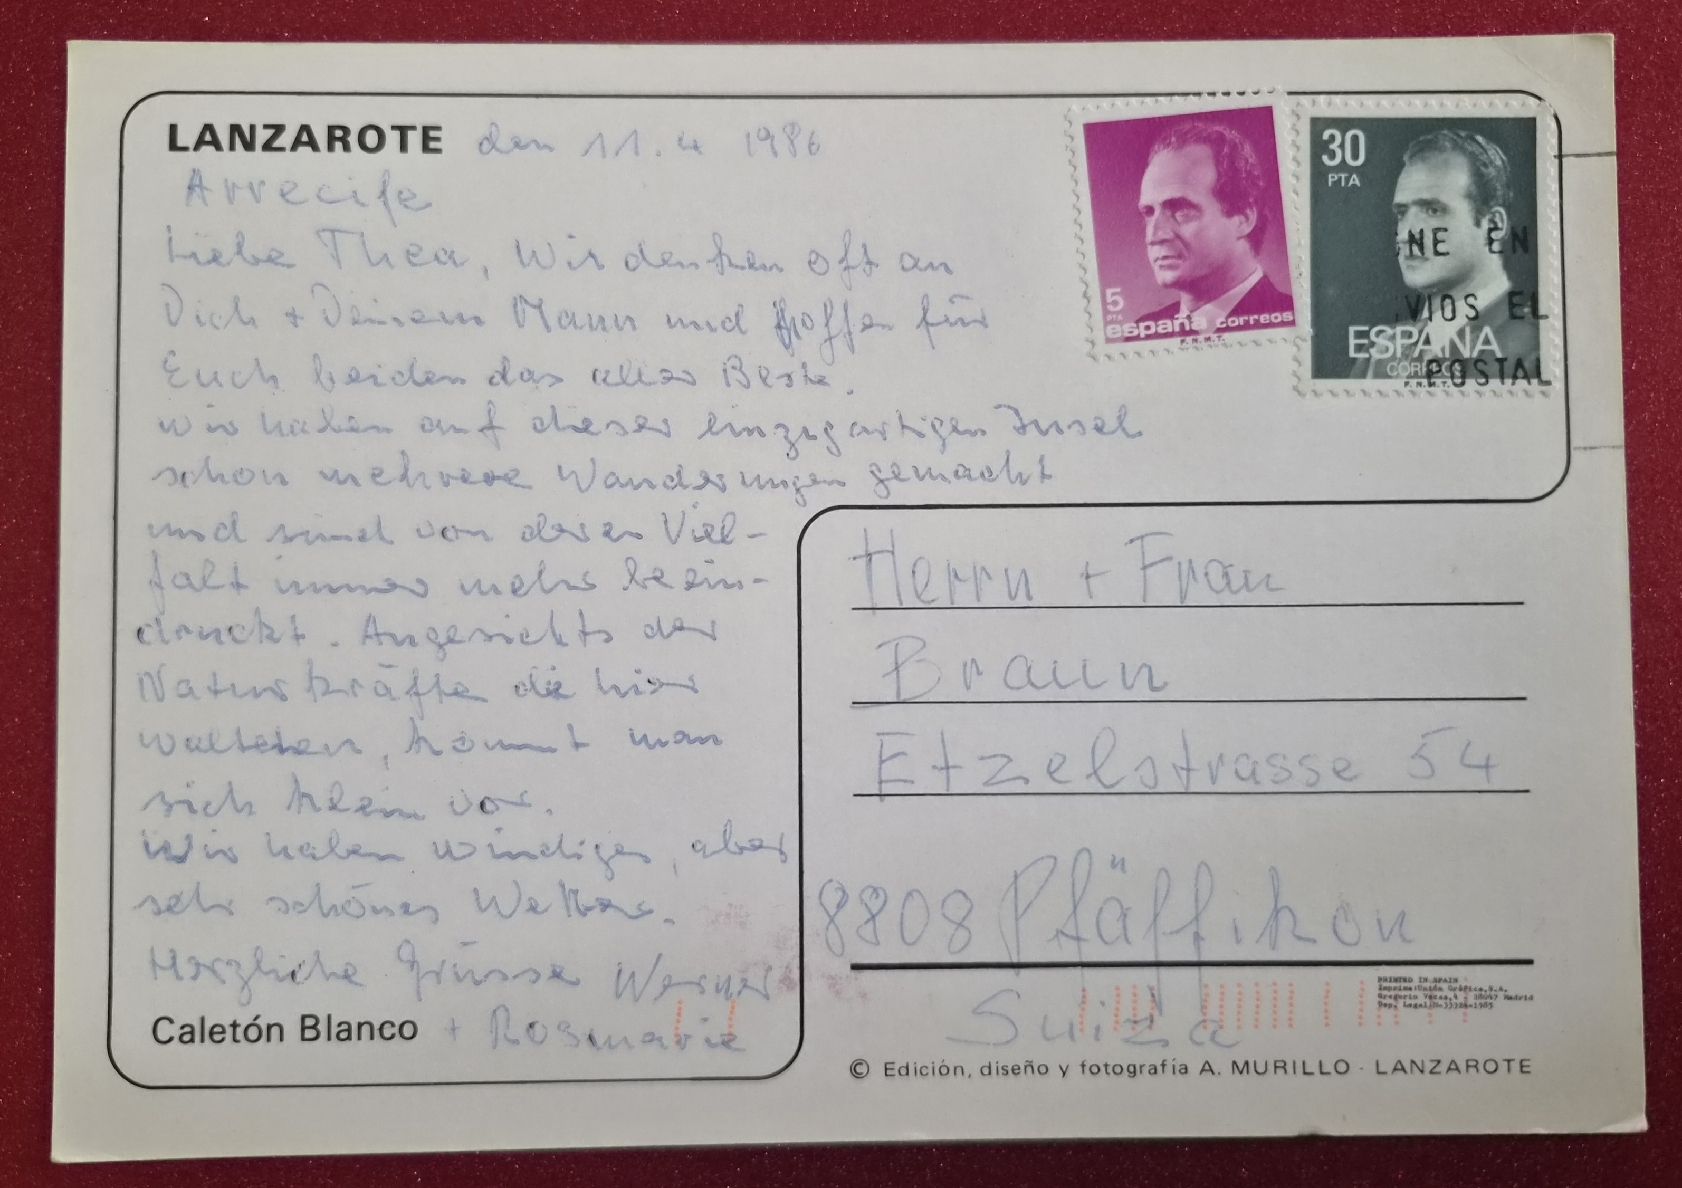 LANZAROTE den 11.4 1986
Arrecife
Liebe Thea, Wir denken oft an
Dich + Deinem Mann und hoffen für
Euch beiden das aller Beste.
wir haben auf dieser einzigartigen Insel
schon mehrere Wanderungen gemacht
und sind von deren Viel-
falt immer mehr beein-
druckt. Angesichts der
Naturkräfte die hier
walteten, kommt man
sich klein vor.
Wir haben windiges, aber
sehr schönes Wetter.
Herzliche Grüsse Werner
Caletón Blanco + Rosmarie
5
PTA
españa correos
F.N.M.T.
30
PTA
ESPAÑA
CORREOS
F.N.M.T.
NE EN
VIOS EL
POSTAL
Herrn + Frau
Braun
Etzelstrasse 54
8808 Pfäffikon
Suiza
PRINTED IN SPAIN
Imprime: Unión Gráfica, S.A.
Gregorio Vacas, 4 28047 Madrid
Dep. Legal: M-33324-1985
© Edición, diseño y fotografía A. MURILLO - LANZAROTE